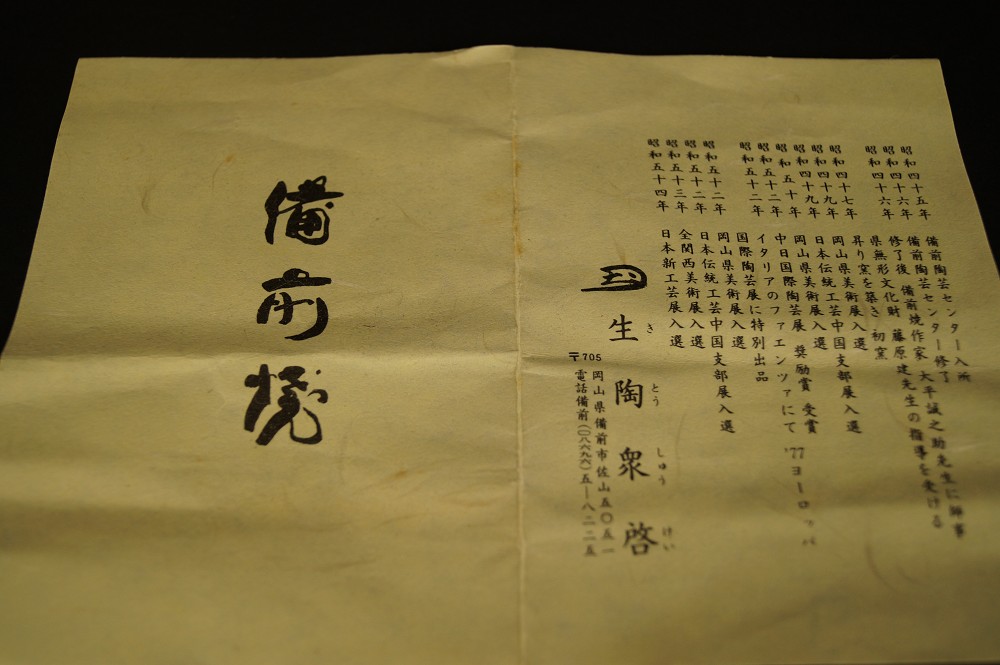 昭和四十五年 備前陶芸センター入所
昭和四十六年 備前陶芸センター修了
昭和四十六年 修了後 備前焼作家 大平誠之助先生に師事
県無形文化財 藤原建先生の指導を受ける
昭和四十七年 昇り窯を築き 初窯
昭和四十九年 岡山県美術展入選
昭和四十九年 日本伝統工芸中国支部展入選
昭和五十年 岡山県美術展 奨励賞 受賞
昭和五十二年 中日国際陶芸展
昭和五十二年 イタリアのファエンツァにて '77ヨーロッパ
国際陶芸展に特別出品
昭和五十二年 岡山県美術展入選
昭和五十二年 日本伝統工芸中国支部展入選
昭和五十三年 全関西美術展入選
昭和五十四年 日本新工芸展入選
き とう しゅう けい
生 陶 衆 啓
〒705
岡山県備前市佐山五〇五一
電話備前(〇八六九六)五―八二二五
備前焼